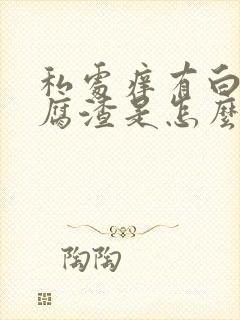 私处痒有白
腐渣是怎麼
陶陶